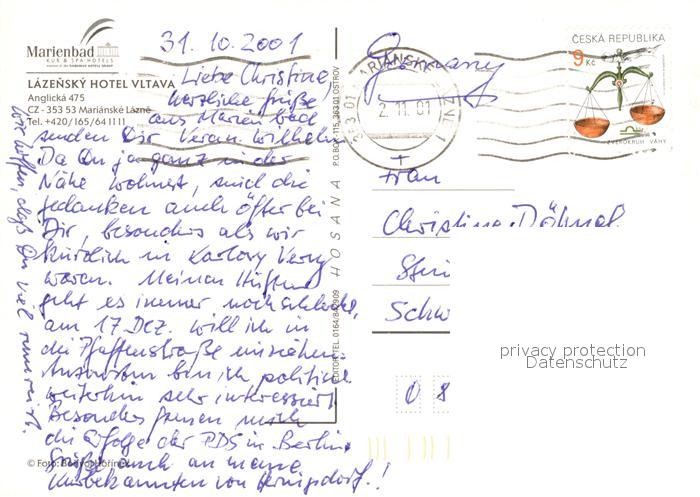 Marienbad
KUR & SPA HOTELS
LÁZEŇSKÝ HOTEL VLTAVA
Anglická 475
CZ - 353 53 Mariánské Lázně
Tel. +420/165/64 1111
31. 10. 2001
Liebe Christine
herzliche Grüße
aus Marienbad
senden Dir Veran. Wilhelm
Da Du ja ganz in der
Nähe wohnest, sind die
Gedanken auch öfter bei
Dir, besonders als wir
kürzlich in Karlovy Vary
waren. Meinen Hüften
geht es immer noch schlecht,
am 17. Dez. will ich in
die Pfaffenstraße einziehen.
Ansonsten bin ich politisch
weiterhin sehr interessiert.
Besonders freuen mich
die Erfolge der PDS in Berlin.
Grüße auch an meine
Unbekannten von Hennigsdorf!
Wir hoffen, dass Du viel
HOSANA
Germany
353 01 MARIÁNSKÉ LÁZNĚ 1
2. 11. 01
ČESKÁ REPUBLIKA
9 Kč
ZVĚROKRUH VÁHY
Frau
Christina Döhnel
Schw
0 8
privacy protection
Datenschutz